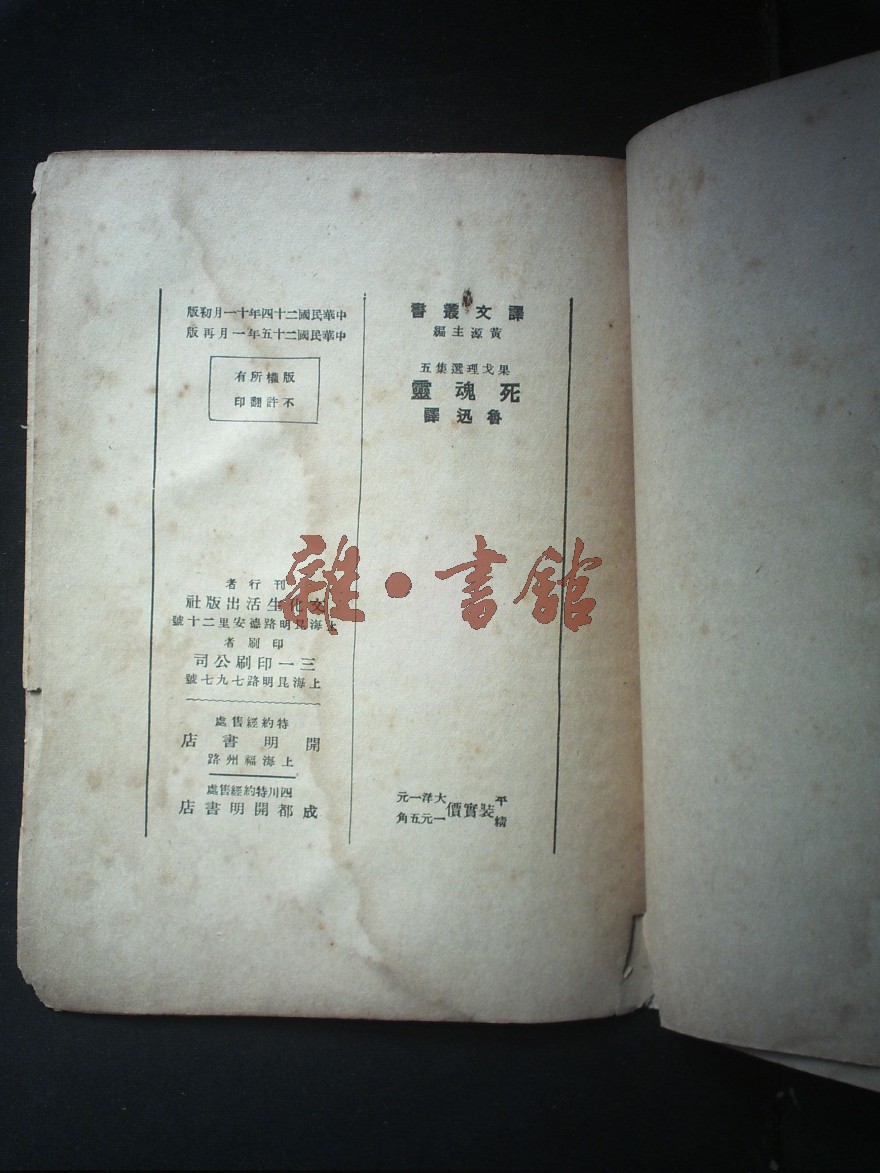 譯文叢書
黃源主編
果戈理選集五
死魂靈
魯迅譯
平裝實價大洋一元
精一元五角
中華民國二十四年十一月初版
中華民國二十五年一月再版
版權所有
不許翻印
刊行者
文化生活出版社
上海昆明路德安里二十號
印刷者
三一印刷公司
上海昆明路七九七號
特約經售處
開明書店
上海福州路
四川特約經售處
成都開明書店
雜·書館